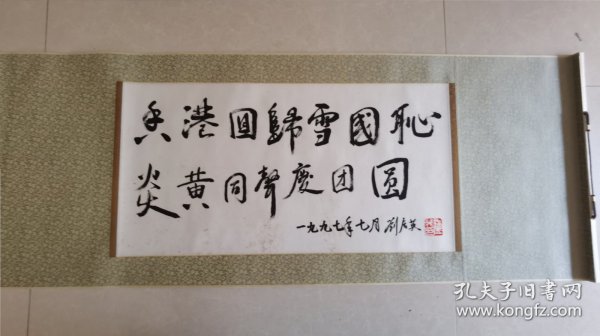 香港回歸雪國恥
炎黄同聲慶团圆
一九九七年七月 劉友英
孔夫子旧書网
www.kongfz.com